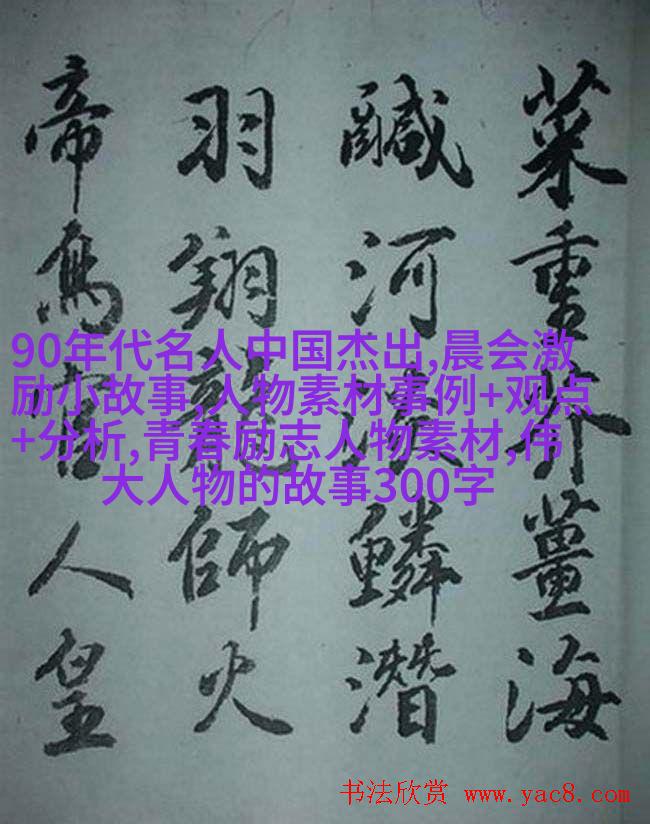 菜重芥薑海
鹹河淡鱗潛
羽翔龍師火
帝鳥官人皇
90年代名人中国杰出,晨会激
励小故事,人物素材事例+观点
+分析,青春励志人物素材,伟
大人物的故事300字
书法欣赏 www.yac8.com